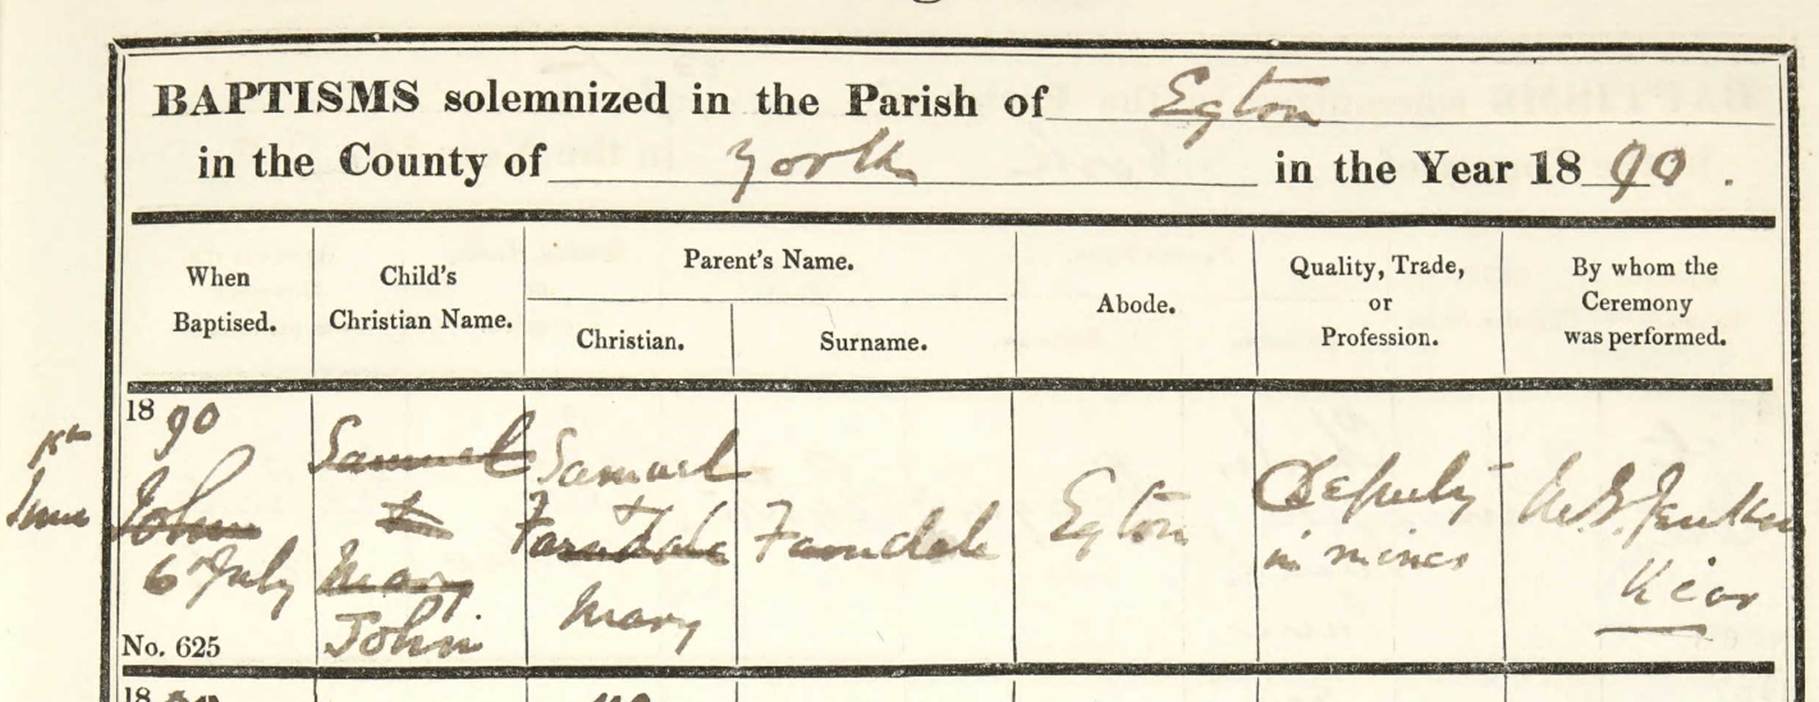 BAPTISMS solemnized in the Parish of Egton
in the County of York in the Year 18 90.
When Baptised.
Child's Christian Name.
Parent's Name.
Christian.
Surname.
Abode.
Quality, Trade, or Profession.
By whom the Ceremony was performed.
18 90
June
John
6th July
No. 625
Samuel
&
Mary
John
Samuel
Farndale
Mary
Farndale
Egton
Deputy
in mines
Vicar
18 90